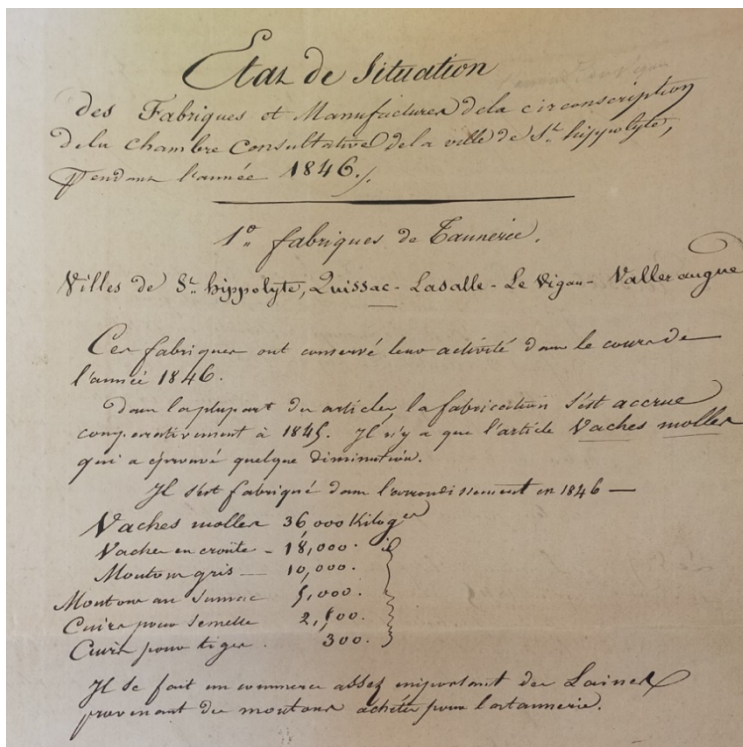 Etat de Situation
des Fabriques et Manufactures de la circonscription
de la chambre Consultative de la ville de St. hippolyte,
Pendant l'année 1846./.
1° fabriques de Tannerie.
Villes de St. hippolyte, Quissac - Lasalle - Le Vigan - Valleraugue
Ces fabriques ont conservé leur activité dans le cours de
l'année 1846.
Dans la plupart des articles, la fabrication s'est accrue
comparativement à 1845. Il n'y a que l'article Vaches molles
qui a éprouvé quelque diminution.
Il s'est fabriqué dans l'arrondissement en 1846 —
Vaches molles 36,000 Kilogs
Vaches en croûte - 18,000.
Moutons gris — 10,000.
Moutons au sumac 5,000.
Cuirs pour semelle 2,500.
Cuirs pour tiges. 300.
Il se fait un commerce assez important des Laines
provenant des moutons achetés pour la tannerie.